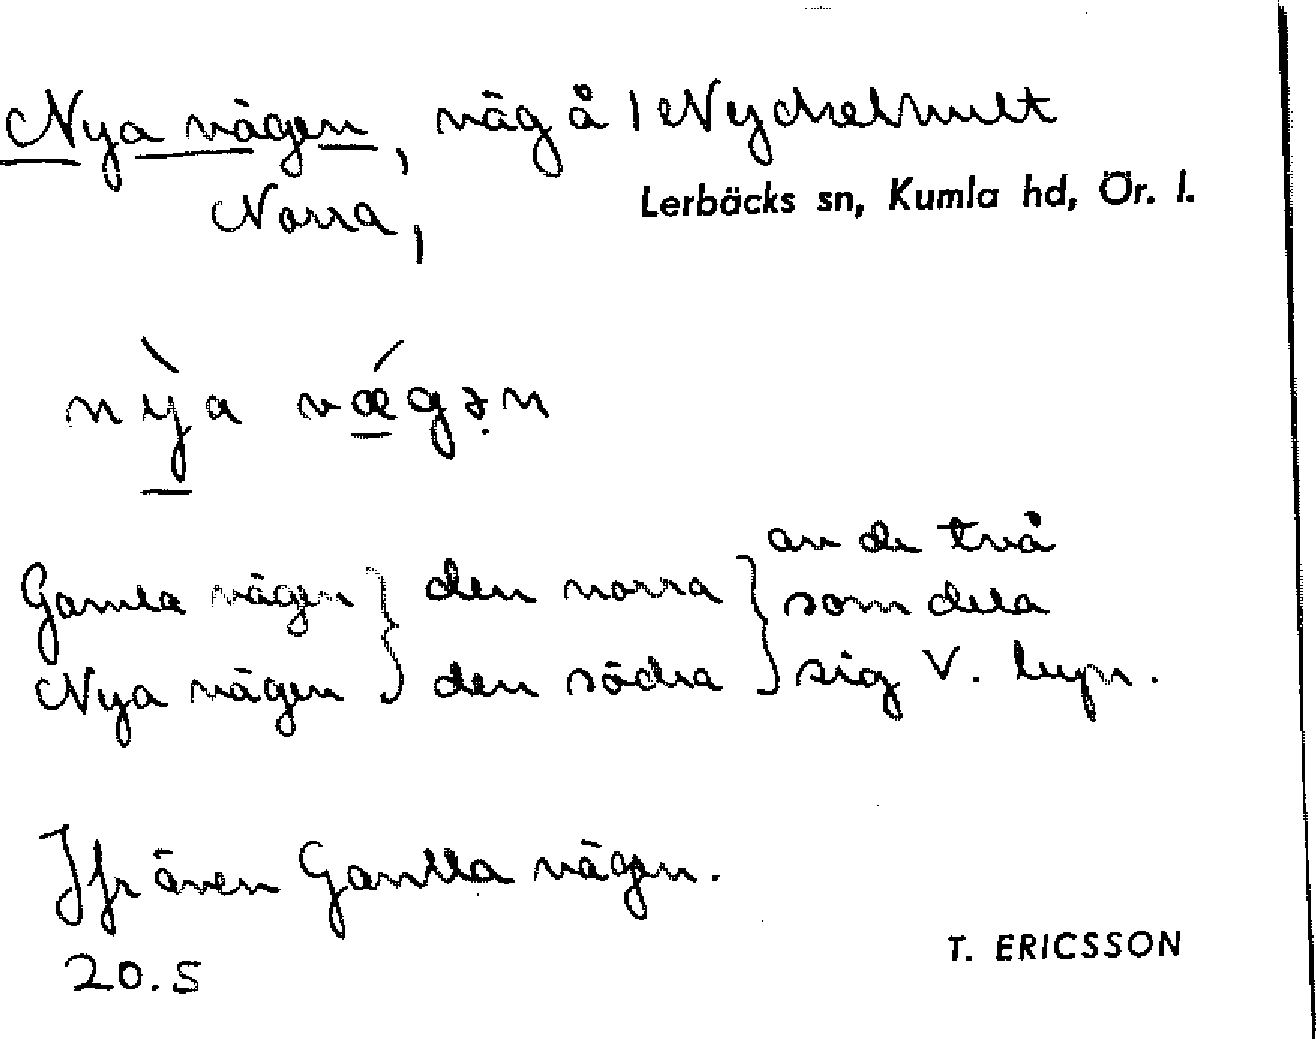 Nya vägen, väg å 1 Nyckelhult
Norra,
Lerbäcks sn, Kumla hd, Ör. l.
nỳa vǽgən
Gamla vägen } den norra } av de två
som dela
Nya vägen } den södra } sig V.
Jfr även Gamla vägen.
20.5
T. ERICSSON